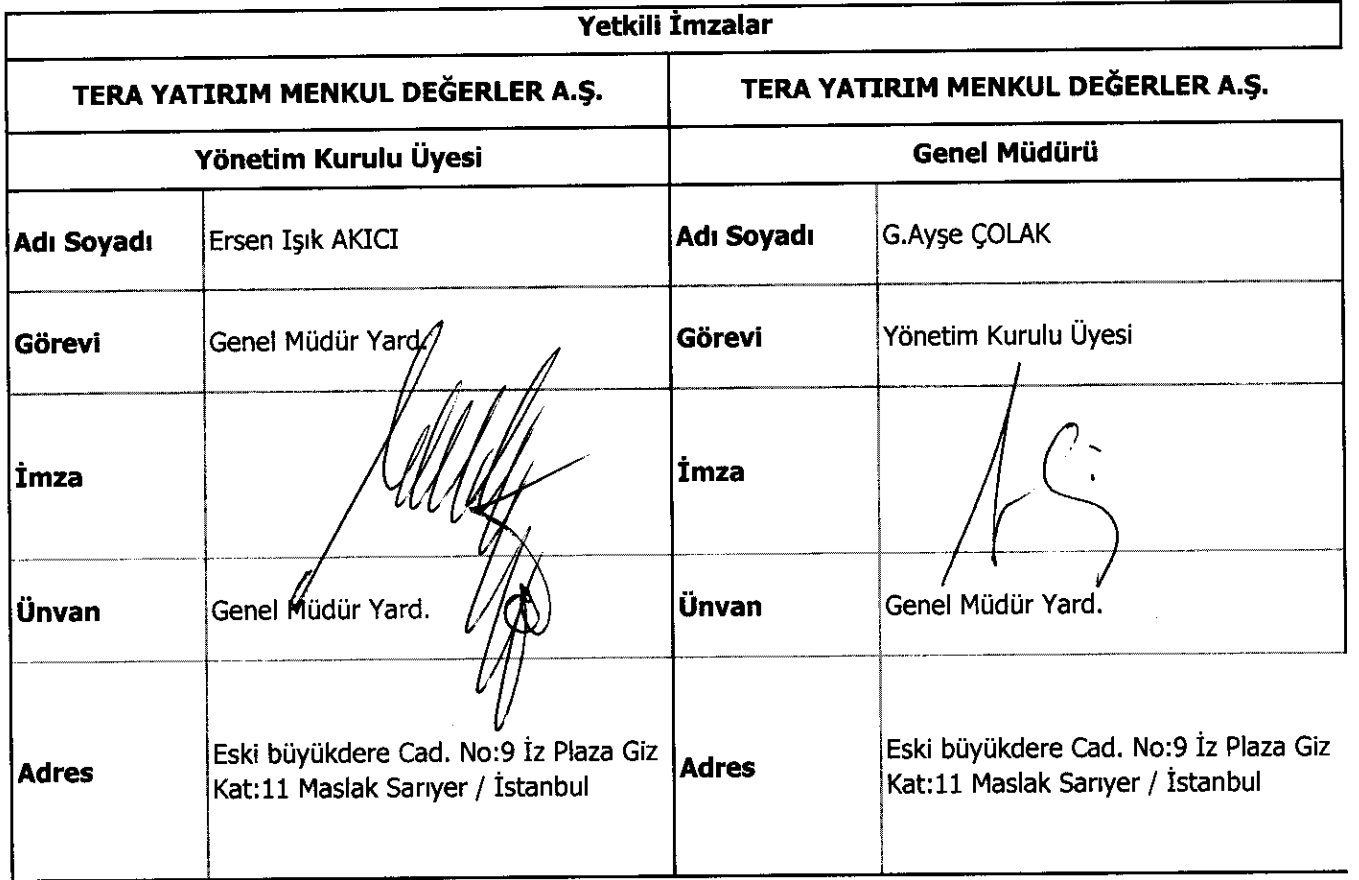 Yetkili İmzalar
TERA YATIRIM MENKUL DEĞERLER A.Ş.
TERA YATIRIM MENKUL DEĞERLER A.Ş.
Yönetim Kurulu Üyesi
Genel Müdürü
Adı Soyadı
Ersen Işık AKICI
Adı Soyadı
G.Ayşe ÇOLAK
Görevi
Genel Müdür Yard.
Görevi
Yönetim Kurulu Üyesi
İmza
İmza
Ünvan
Genel Müdür Yard.
Ünvan
Genel Müdür Yard.
Adres
Eski büyükdere Cad. No:9 İz Plaza Giz
Kat:11 Maslak Sarıyer / İstanbul
Adres
Eski büyükdere Cad. No:9 İz Plaza Giz
Kat:11 Maslak Sarıyer / İstanbul